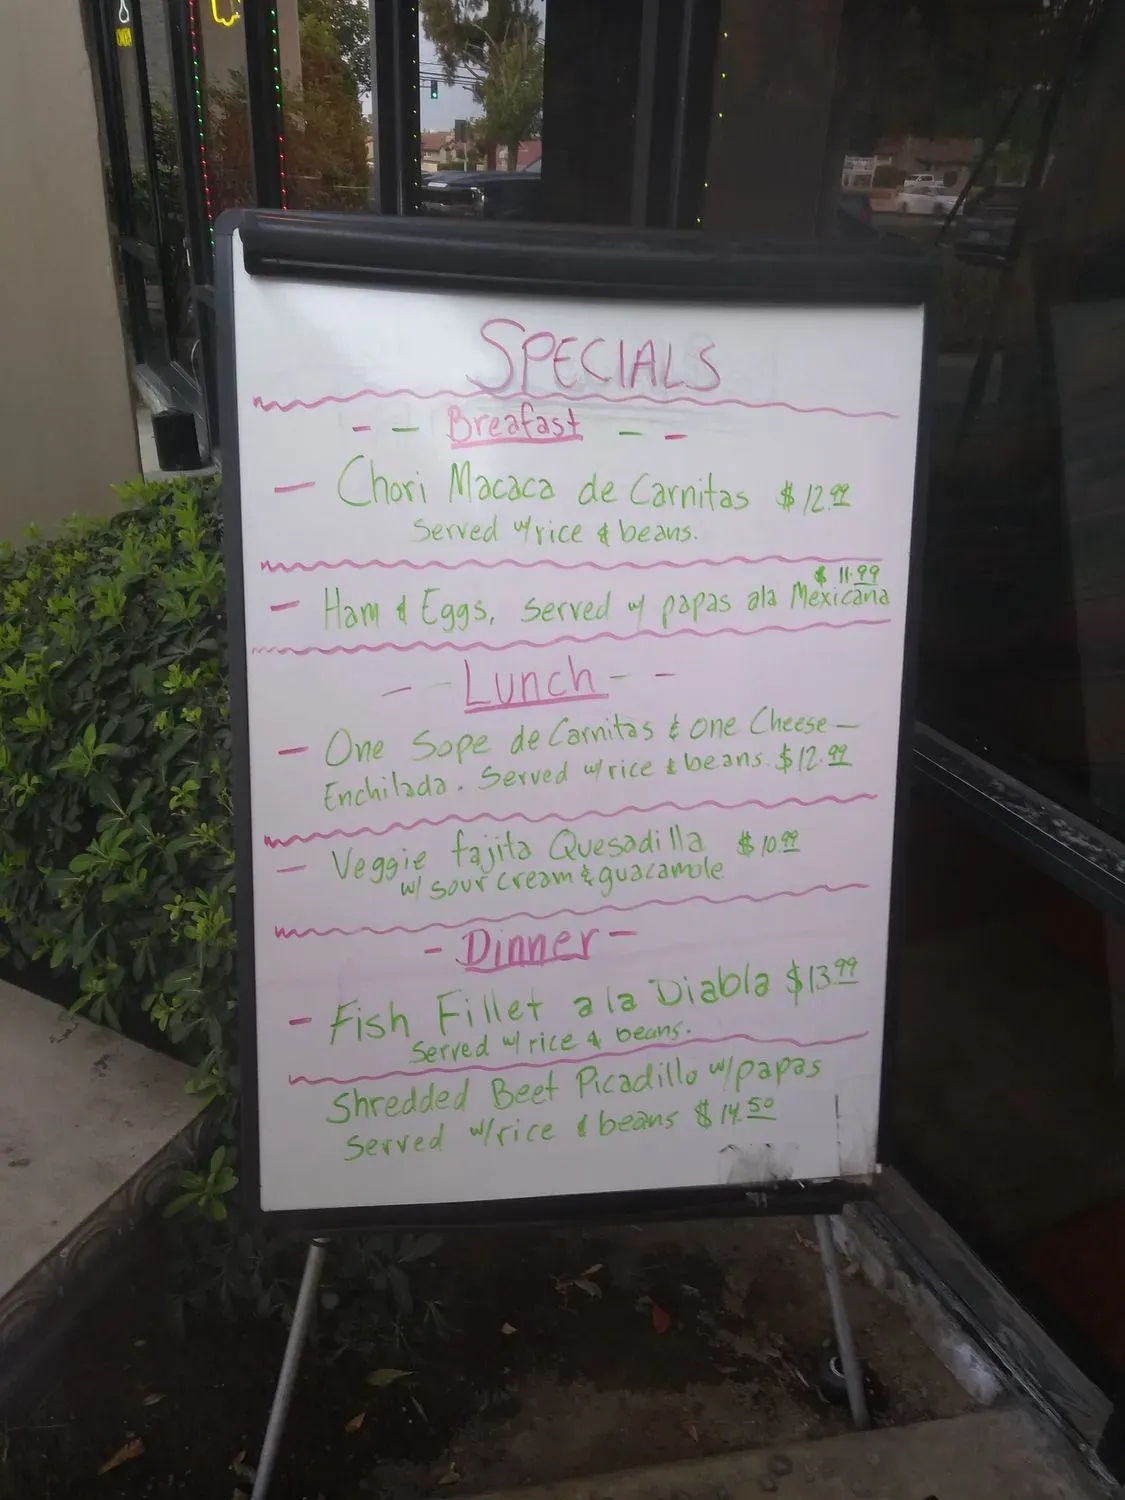 SPECIALS
- - Breafast - -
- Chori Macaca de Carnitas $12.99
Served w/rice & beans.
$11.99
- Ham & Eggs, Served w/ papas ala Mexicana
- - Lunch - -
- One Sope de Carnitas & one Cheese -
Enchilada. Served w/rice & beans. $12.99
- Veggie fajita Quesadilla $10.99
w/ sour cream & guacamole
- Dinner -
- Fish Fillet a la Diabla $13.99
Served w/rice & beans.
Shredded Beef Picadillo w/papas
Served w/rice & beans $14.50